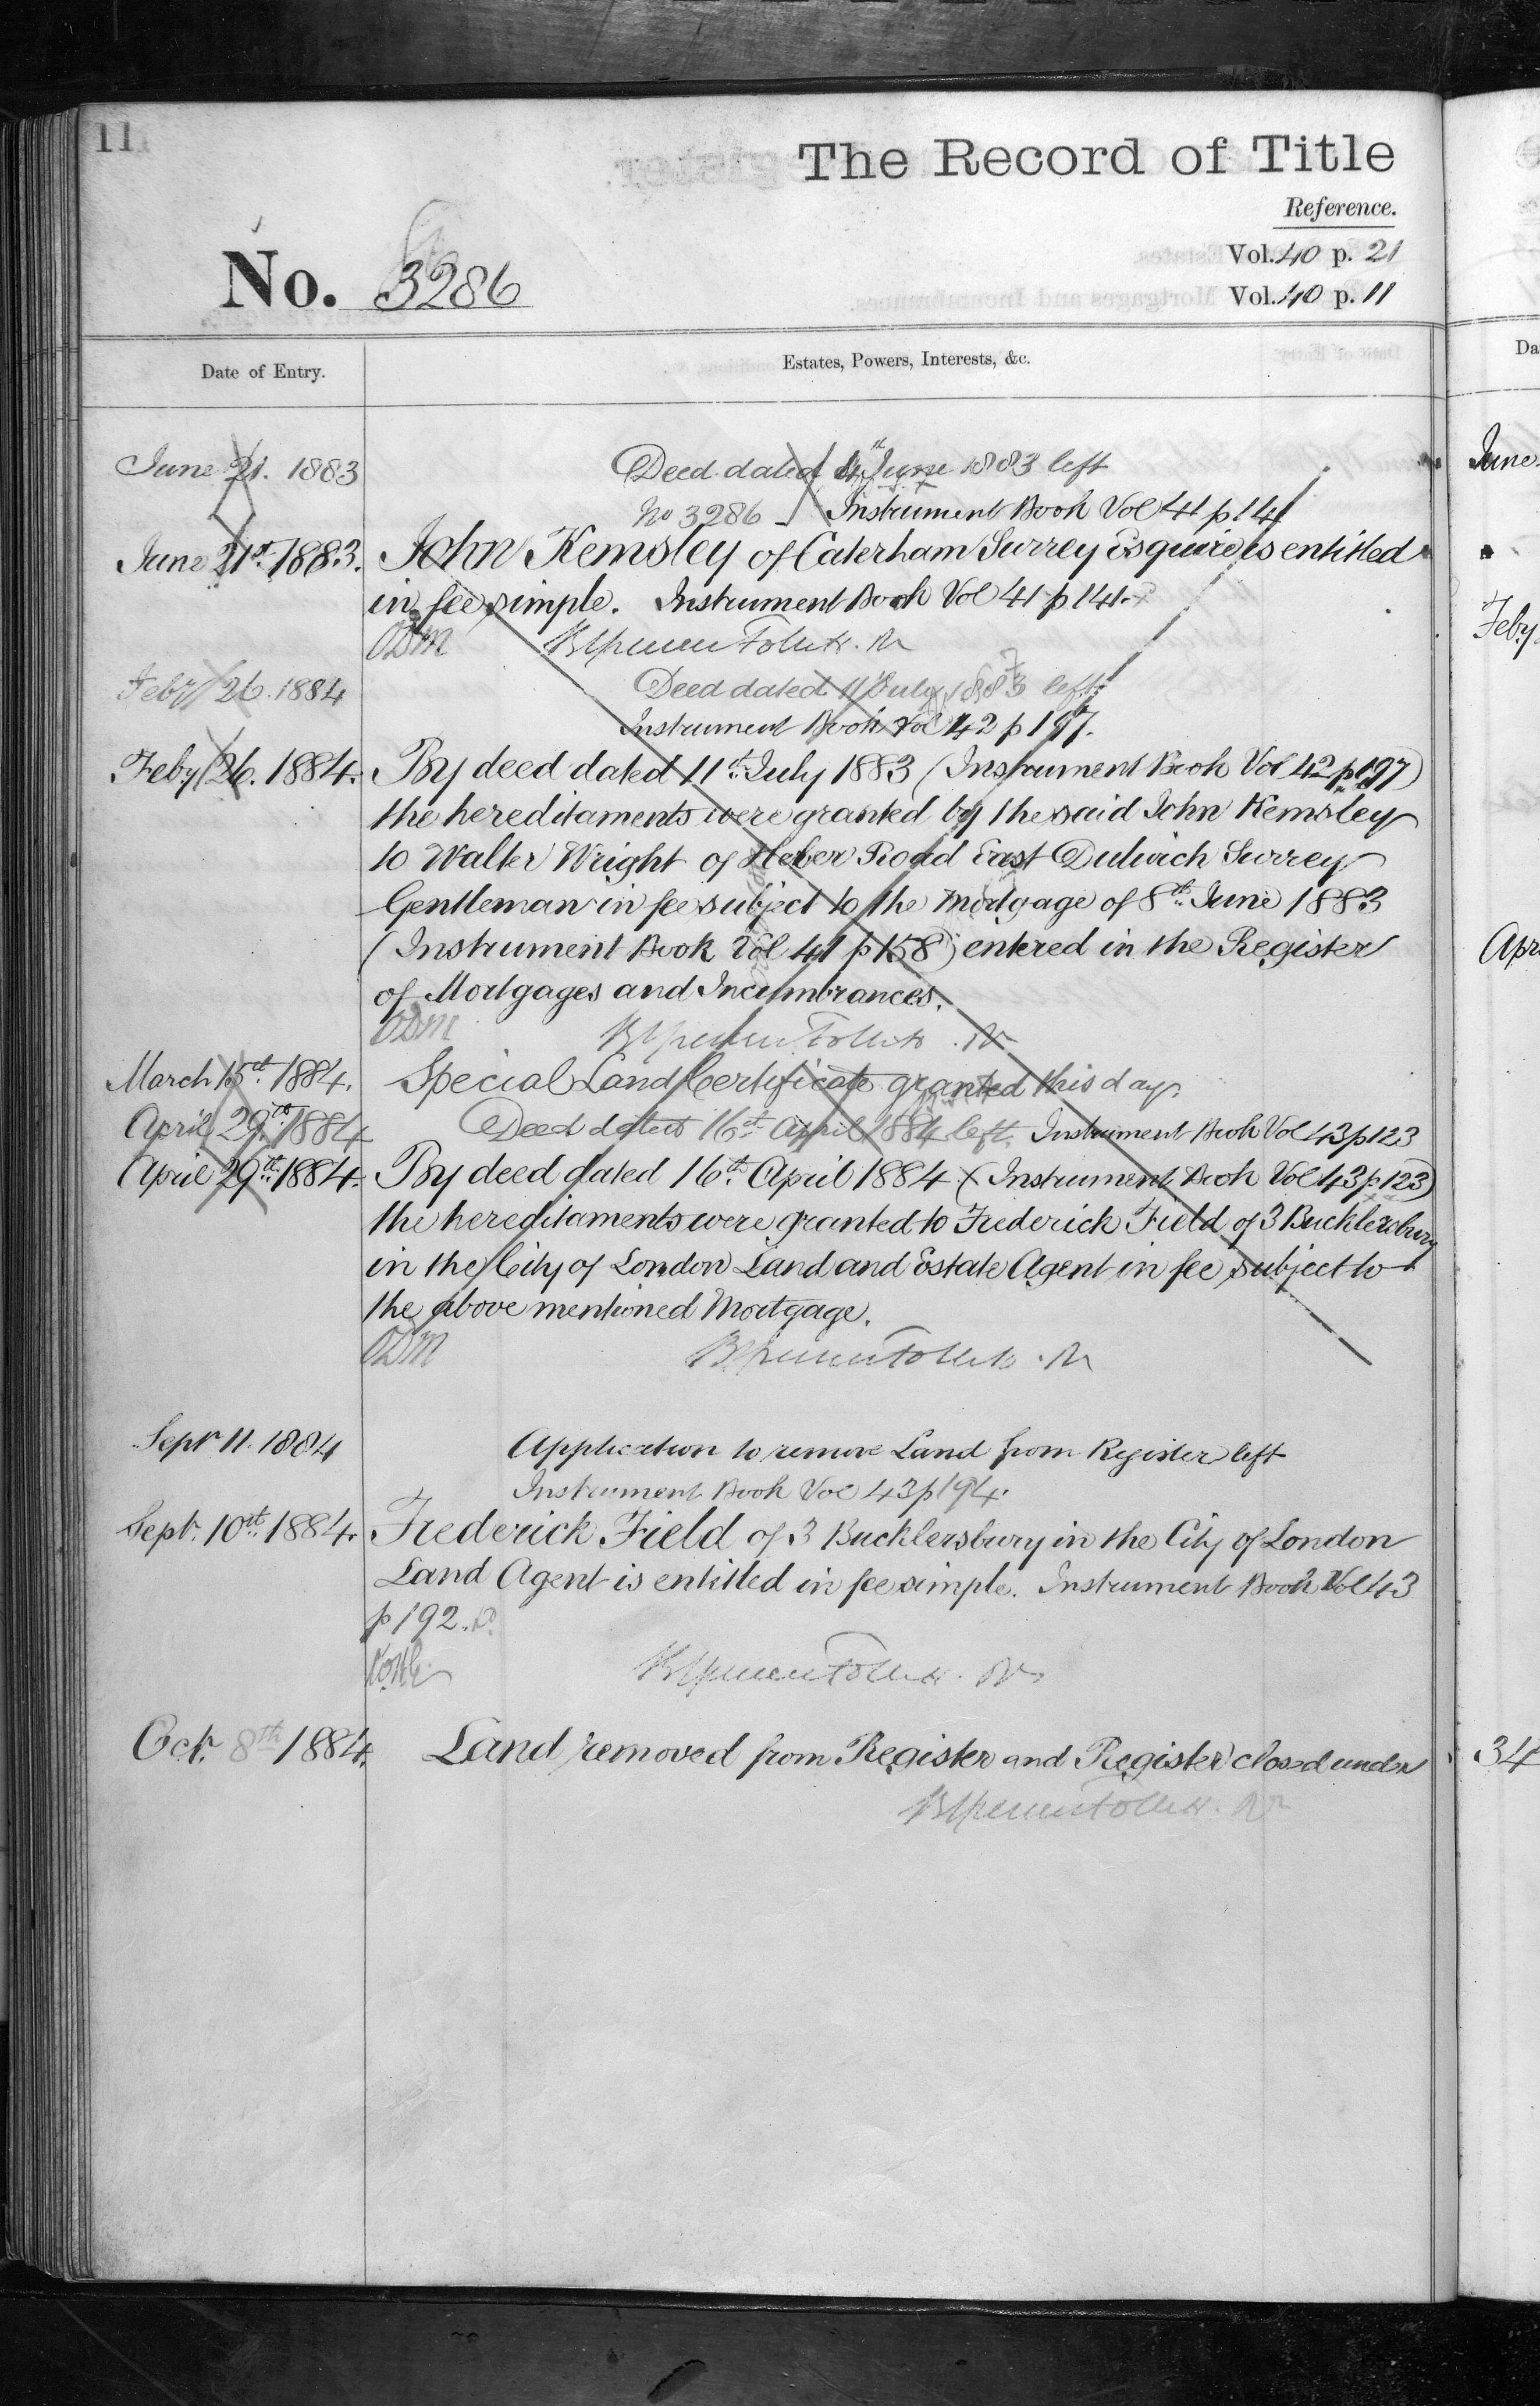 11
The Record of Title
Reference.
Vol. 40 p. 21
No. 3286
Vol. 40 p. 11
Date of Entry.
Estates, Powers, Interests, &c.
June 21. 1883 Deed dated June 1883 left
No 3286 Instrument Book Vol 41 p 141
June 21st 1883. John Kemsley of Caterham Surrey Esquire is entitled
in fee simple. Instrument Book Vol 41 p 141.
ODM
Feby 26. 1884 Deed dated 11 July 1883 left
Instrument Book Vol 42 p 197.
Feby 26. 1884. By deed dated 11th July 1883 (Instrument Book Vol 42 p 197)
the hereditaments were granted by the said John Kemsley
to Walter Wright of Heber Road East Dulwich Surrey
Gentleman in fee subject to the Mortgage of 8th June 1883
(Instrument Book Vol 41 p 158) entered in the Register
of Mortgages and Incumbrances.
ODM
March 15th 1884. Special Land Certificate granted this day.
April 29th 1884 Deed dated 16th April 1884 left. Instrument Book Vol 43 p 123
April 29th 1884. By deed dated 16th April 1884 (Instrument Book Vol 43 p 123)
the hereditaments were granted to Frederick Field of 3 Bucklersbury
in the City of London Land and Estate Agent in fee subject to
the above mentioned Mortgage.
ODM
Sepr 11. 1884 Application to remove Land from Register left
Instrument Book Vol 43 p 194.
Sept. 10th 1884. Frederick Field of 3 Bucklersbury in the City of London
Land Agent is entitled in fee simple. Instrument Book Vol 43
p 192.
Octr. 8th 1884. Land removed from Register and Register closed under
Da
June
Feby
Apr
34